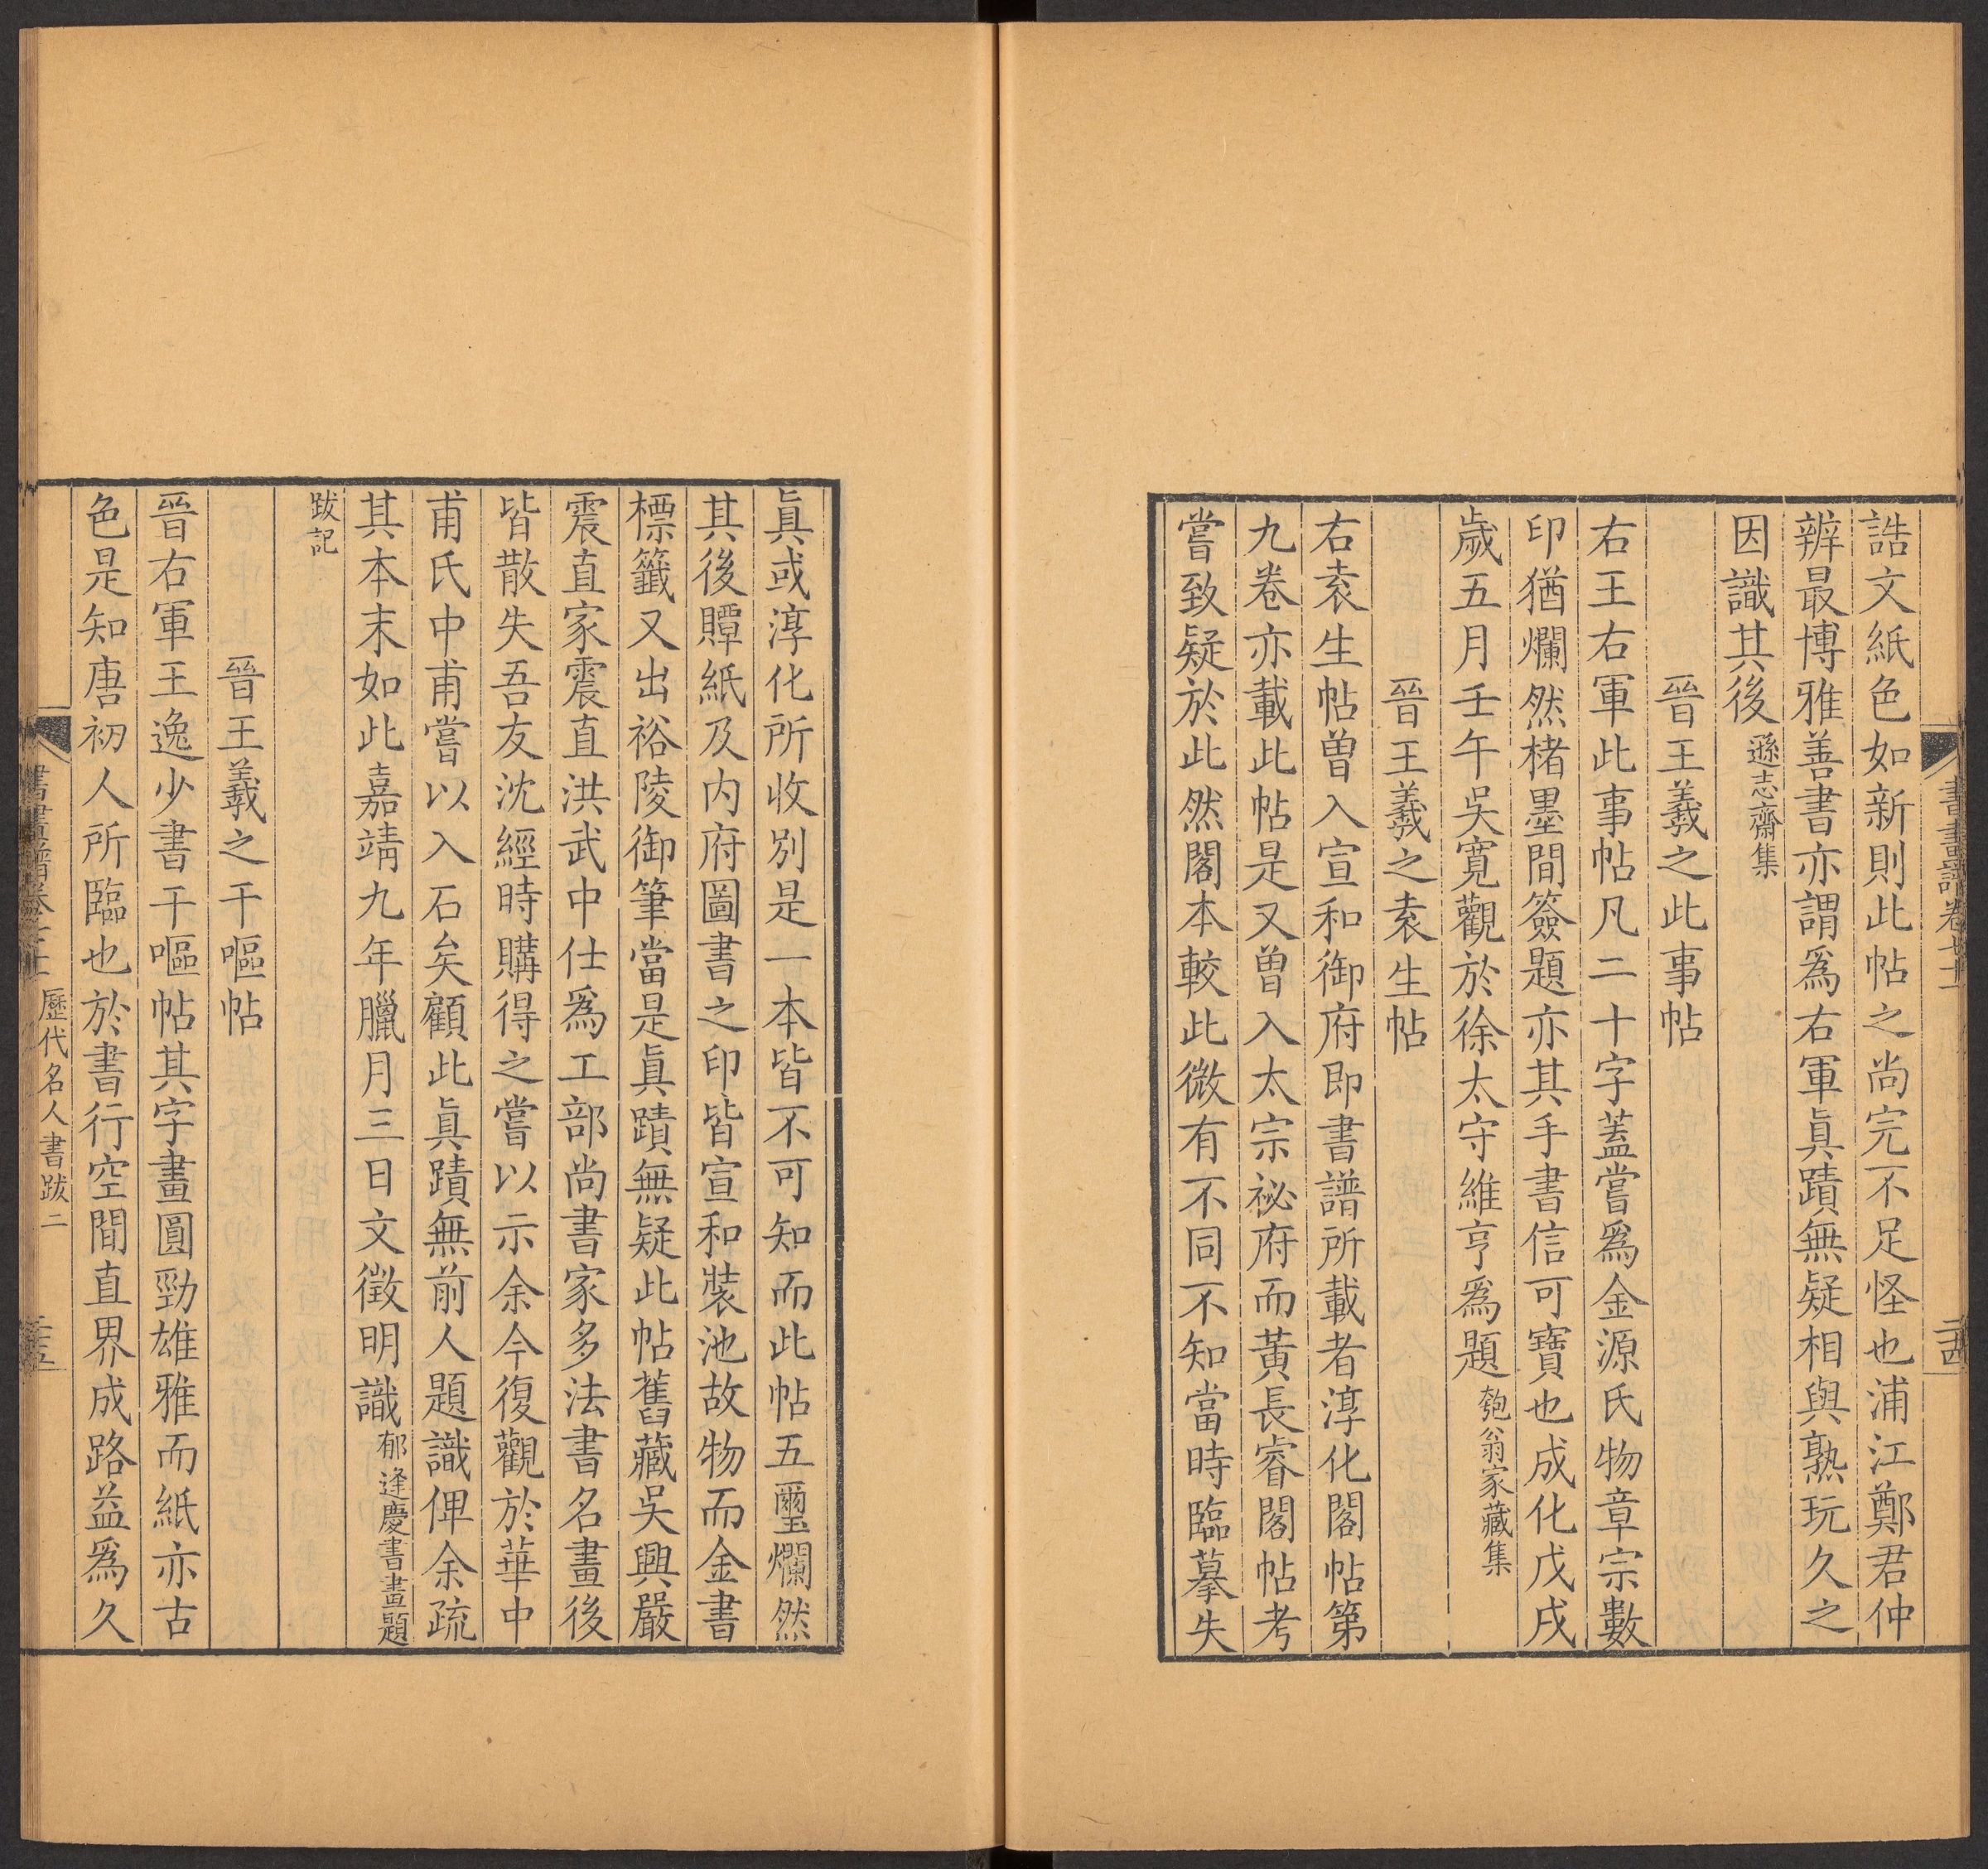 書畫譜卷七十一
二十四
誥文紙色如新則此帖之尚完不足怪也浦江鄭君仲
辨最博雅善書亦謂爲右軍眞蹟無疑相與熟玩久之
因識其後遜志齋集
晉王羲之此事帖
右王右軍此事帖凡二十字蓋嘗爲金源氏物章宗數
印猶爛然楮墨間簽題亦其手書信可寶也成化戊戌
歲五月壬午吳寬觀於徐太守維亨爲題匏翁家藏集
晉王羲之袁生帖
右袁生帖曾入宣和御府即書譜所載者淳化閣帖第
九卷亦載此帖是又曾入太宗祕府而黃長睿閣帖考
嘗致疑於此然閣本較此微有不同不知當時臨摹失
眞或淳化所收別是一本皆不可知而此帖五璽爛然
其後贉紙及内府圖書之印皆宣和裝池故物而金書
標籤又出裕陵御筆當是眞蹟無疑此帖舊藏吳興嚴
震直家震直洪武中仕爲工部尚書家多法書名畫後
皆散失吾友沈經時購得之嘗以示余今復觀於華中
甫氏中甫嘗以入石矣顧此眞蹟無前人題識俾余疏
其本末如此嘉靖九年臘月三日文徵明識郁逢慶書畫題
跋記
晉王羲之干嘔帖
晉右軍王逸少書干嘔帖其字畫圓勁雄雅而紙亦古
色是知唐初人所臨也於書行空閒直界成路益爲久
歷代名人書跋二
二十五